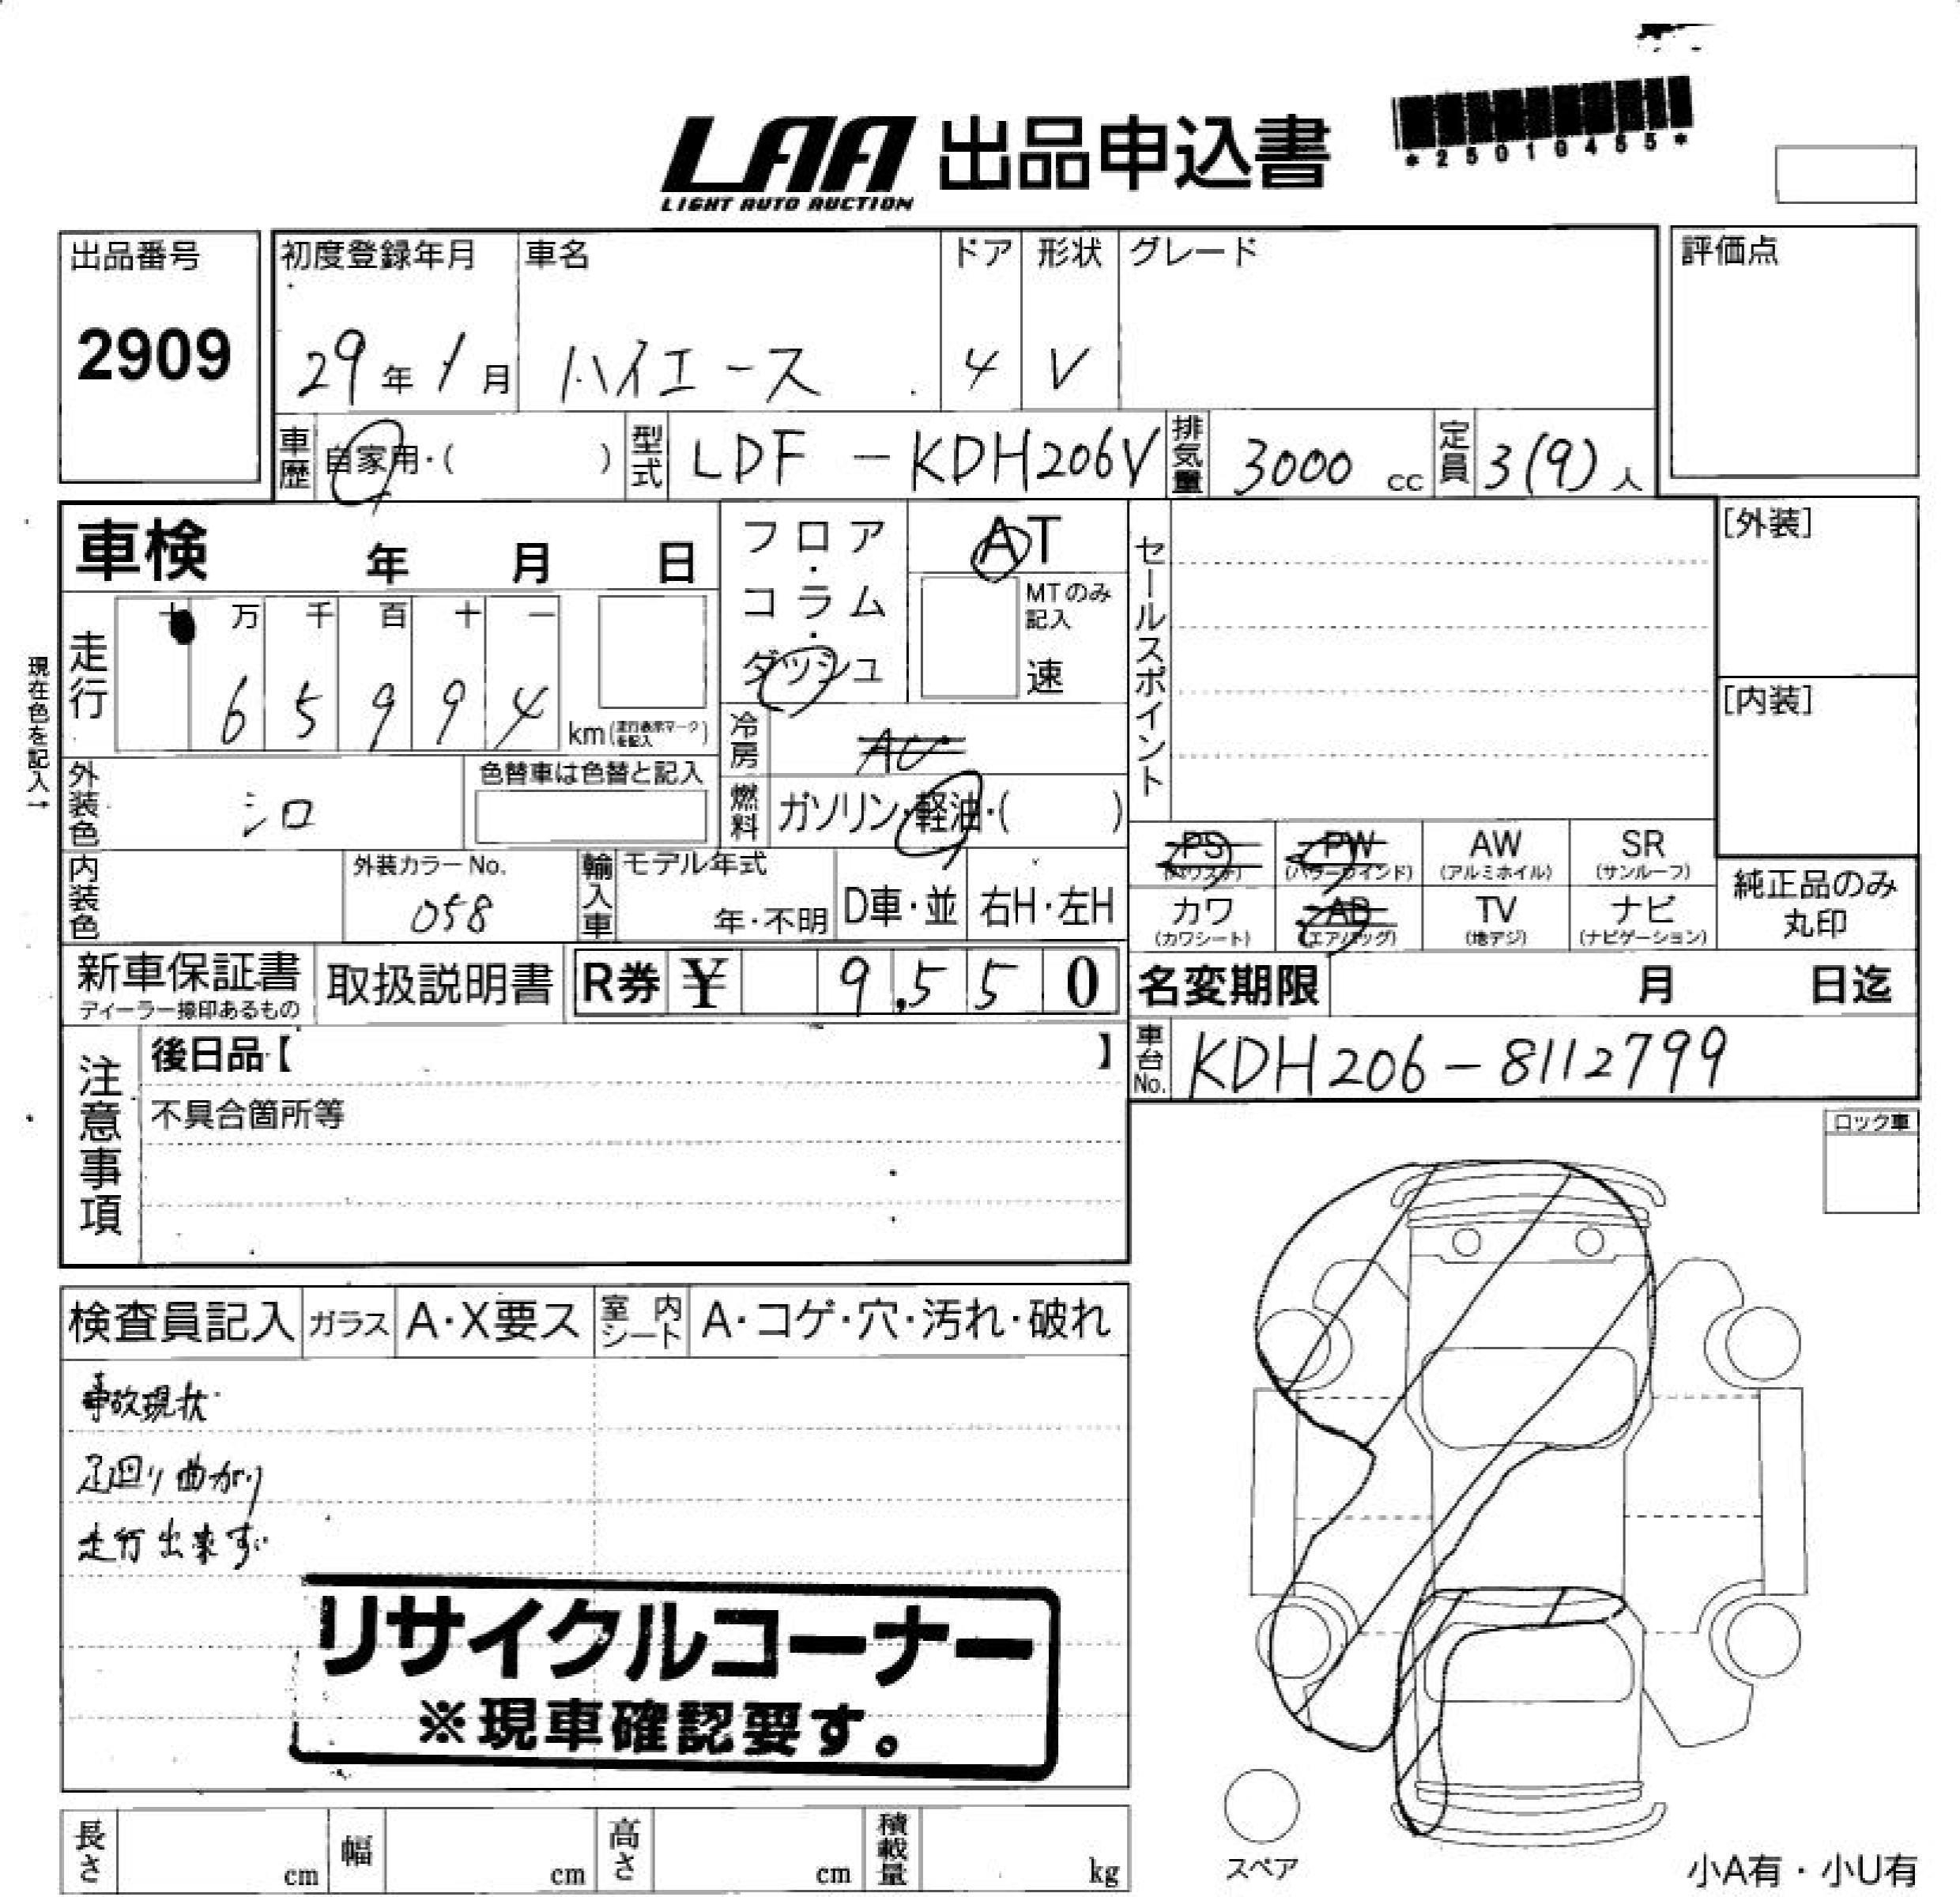 LAA 出品申込書
LIGHT AUTO AUCTION
*25010455*
出品番号
2909
初度登録年月
29年1月
車名
ハイエース
ドア
4
形状
V
グレード
評価点
車歴
自家用・( )
型式
LDF-KDH206V
排気量
3000 cc
定員
3(9)人
車検 年 月 日
フロア・コラム・ダッシュ
AT
MTのみ記入
速
セールスポイント
[外装]
[内装]
現在色を記入→
走行
十 万 千 百 十 一
6 5 9 9 4
km(走行表示マークを記入)
冷房
AC
燃料
ガソリン・軽油・( )
外装色
シロ
色替車は色替と記入
内装色
外装カラーNo.
058
輸入車
モデル年式
年・不明
D車・並
右H・左H
PS
(パワステ)
PW
(パワーウインド)
AW
(アルミホイル)
SR
(サンルーフ)
カワ
(カワシート)
AB
(エアバッグ)
TV
(地デジ)
ナビ
(ナビゲーション)
純正品のみ
丸印
新車保証書
ディーラー捺印あるもの
取扱説明書
R券 ¥ 9,550
名変期限 月 日迄
車台No.
KDH206-8112799
注意事項
後日品【 】
不具合箇所等
ロック車
検査員記入
ガラス
A・X要ス
室内シート
A・コゲ・穴・汚れ・破れ
事故現状
足回り曲がり
走行出来ず
リサイクルコーナー
※現車確認要す。
長さ cm
幅 cm
高さ cm
積載量 kg
スペア
小A有・小U有